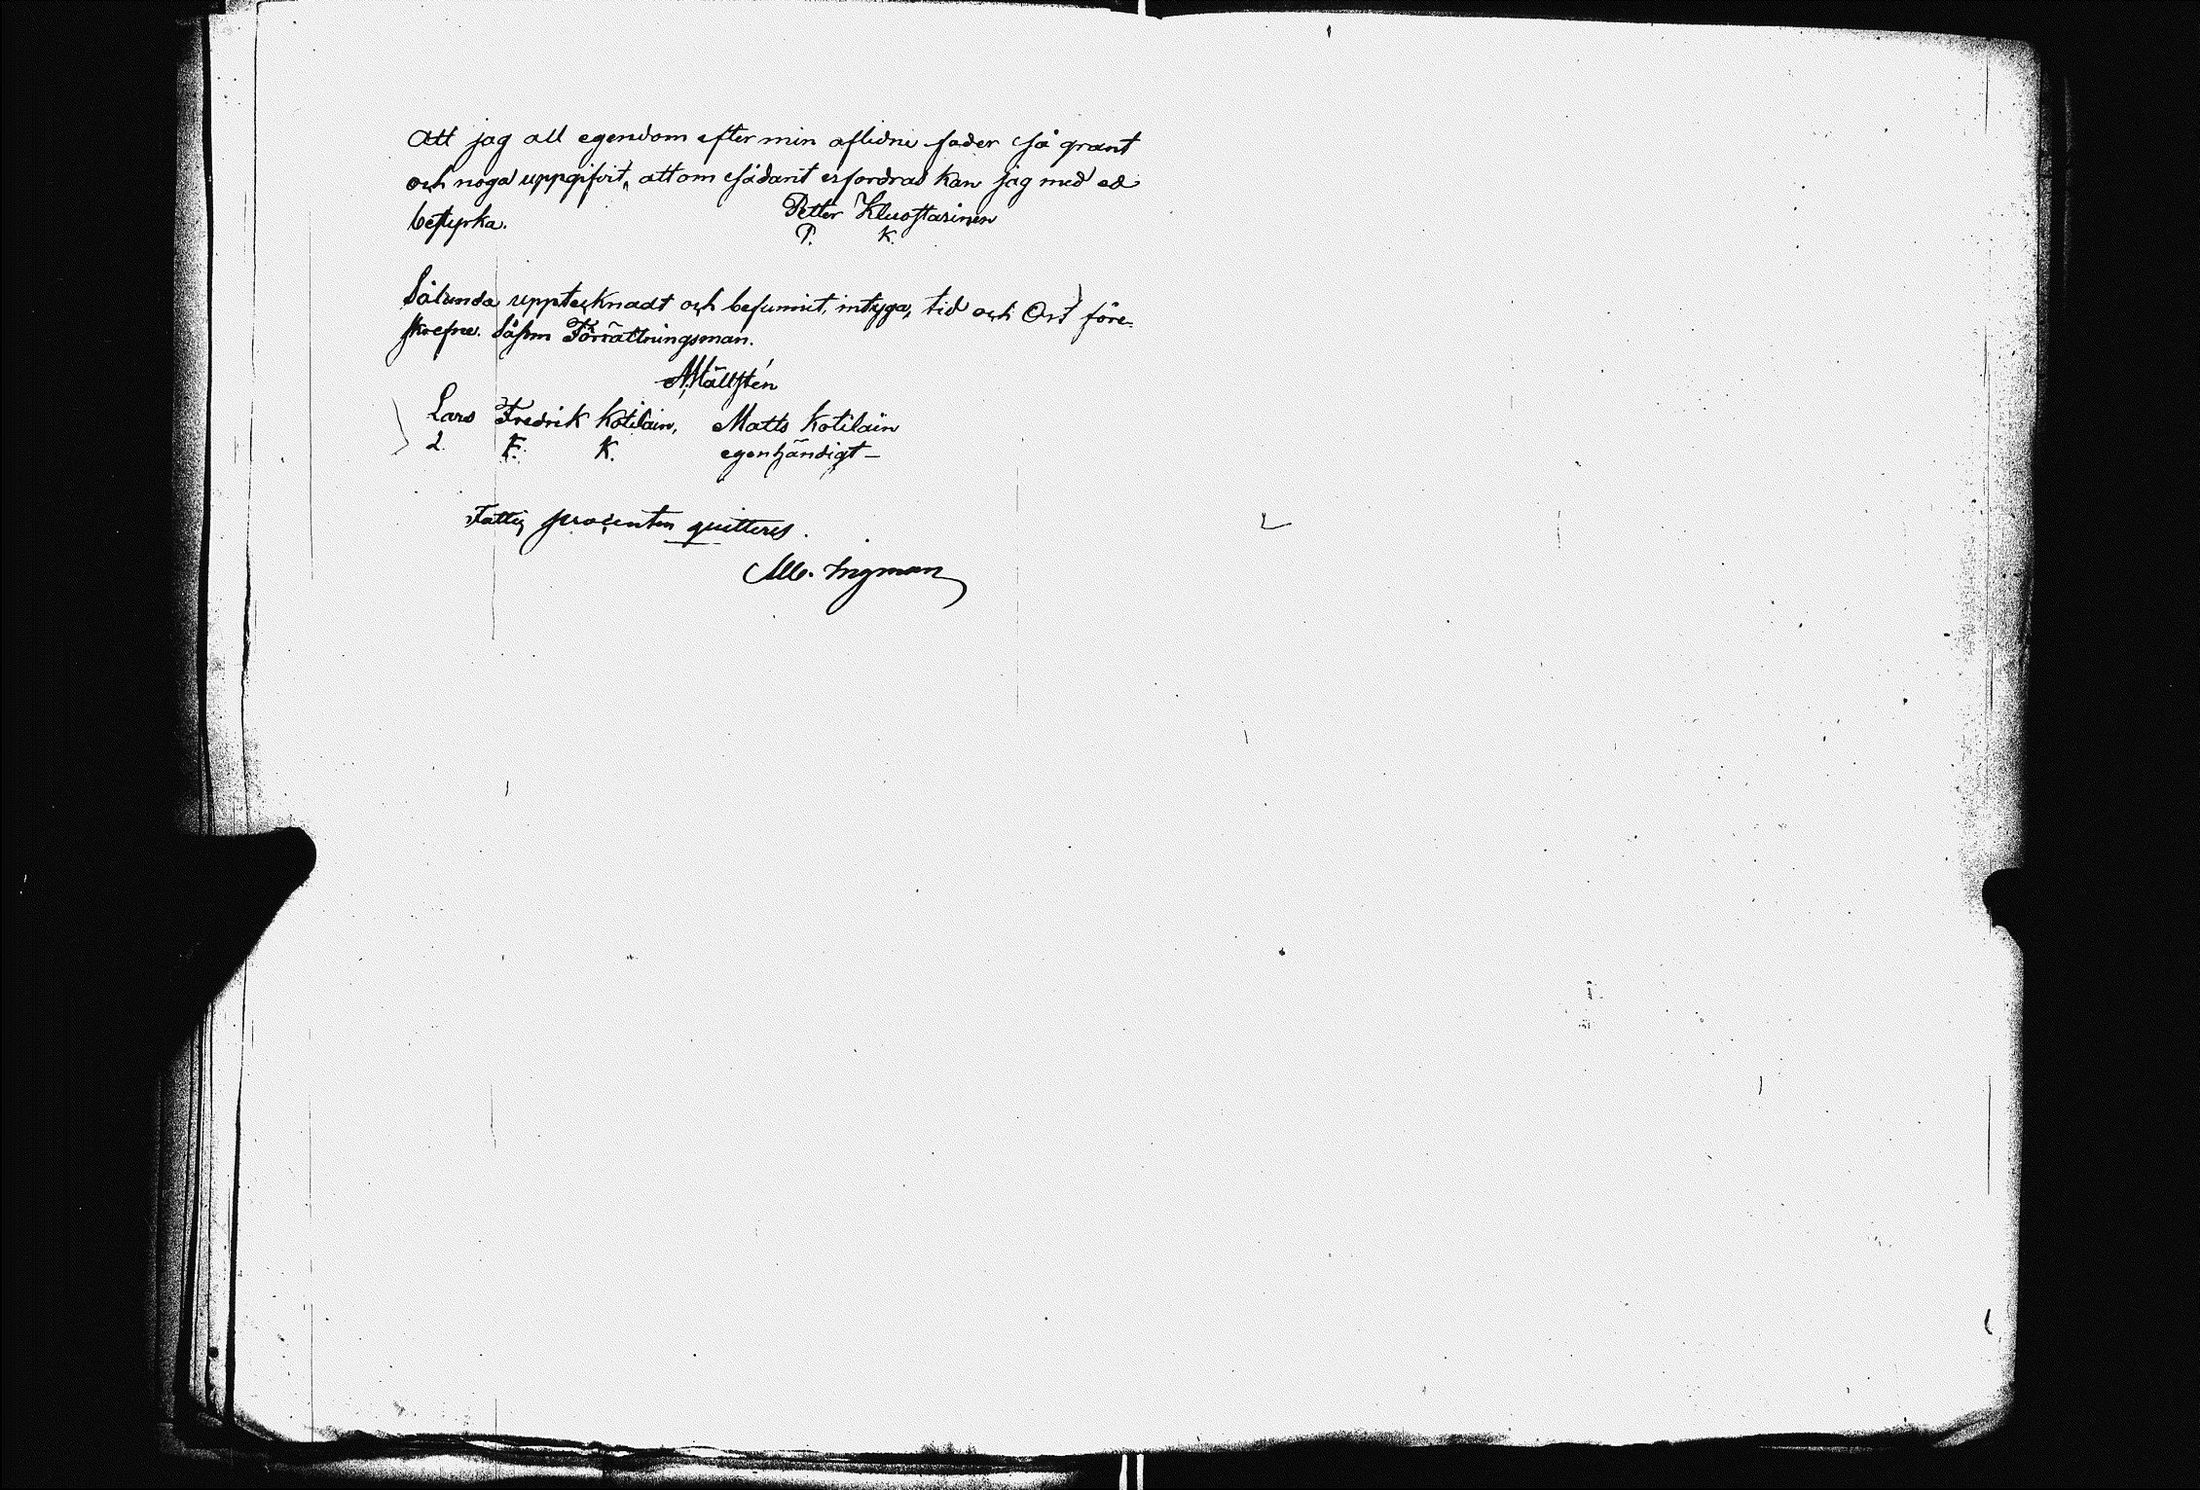 Att jag all egendom efter min aflidne fader så grant
och noga uppgifvit, att om sådant erfordras kan jag med ed
bestyrka. Petter Kluostarinen
P. K.
Sålunda upptecknadt och befunnit, intyga, tid och Ort före-
skrefne. Såsom Förrättningsman.
Mällstén
Lars Fredrik Kotilain, Matts Kotilain
L. F. K. egenhändigt —
Fattig procenten quitteres.
Ingman